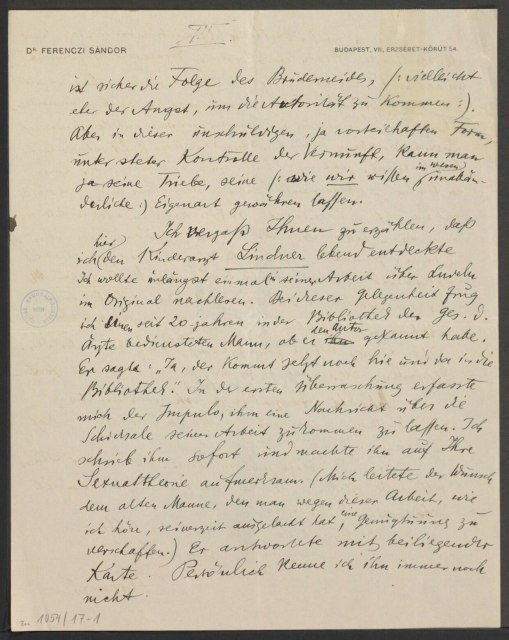 IV.
Dr. FERENCZI SÁNDOR
BUDAPEST, VII, ERZSÉBET-KÖRÚT 54.
ist sicher die Folge des Bruderneides, (: vielleicht
eher der Angst, um die Autorität zu kommen :).
Aber in dieser unschuldigen, ja vorteilhaften Form,
unter steter Kontrolle der Vernunft, kann man
ja seine Triebe, seine (: wie wir wissen im wesen unabän-
derliche :) Eigenart gewähren lassen.
Ich vergaß Ihnen zu erzählen, daß
ich hier den Kinderarzt Lindner lebend entdeckte
Ich wollte unlängst einmal seine Arbeit über Ludeln
im Original nachlesen. Bei dieser Gelegenheit frug
ich einen seit 20 jahren in der Bibliothek der Ges. d.
Ärzte bediensteten Mann, ob er den Autor gekannt habe.
Er sagte: "Ja, der kommt jetzt noch hie und da in die
Bibliothek". In der ersten Überraschung erfasste
mich der Impuls, ihm eine Nachricht über die
Schicksale seiner Arbeit zukommen zu lassen. Ich
schrieb ihm sofort und machte ihn auf Ihre
Sexualtheorie aufmerksam. (Mich leitete der Wunsch
dem alten Manne, den man wegen dieser Arbeit, wie
ich höre, seinerzeit ausgelacht hat, eine Genugtuung zu
verschaffen.) Er antwortete mit beiliegender
Karte. Persönlich kenne ich ihn immer noch
nicht.
1054/17-1